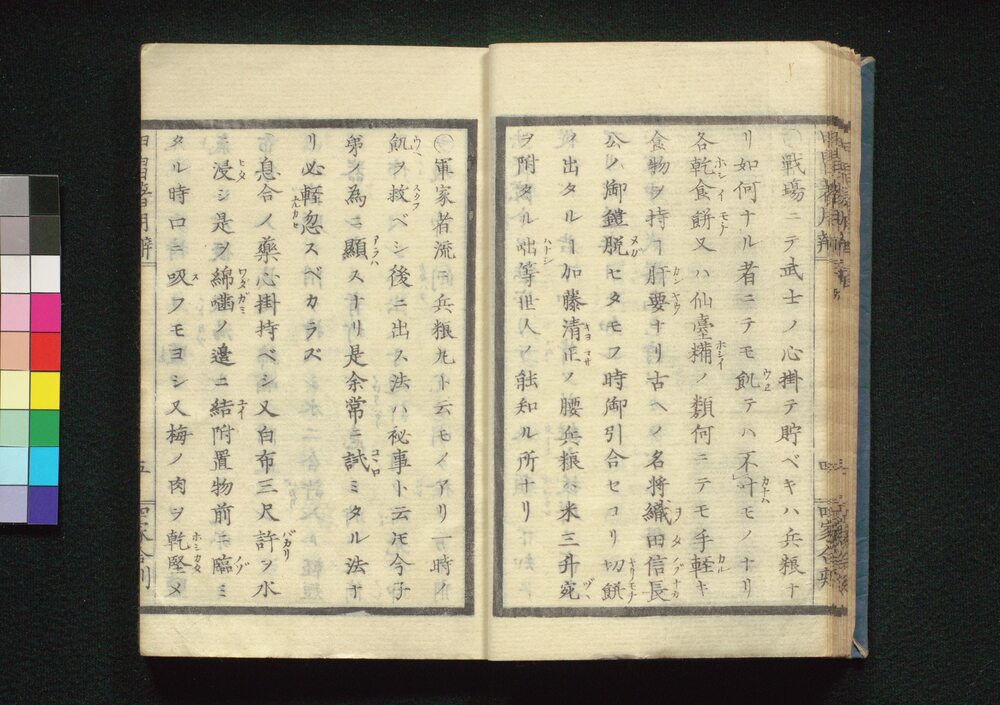 戰場ニテ武士ノ心掛テ貯ベキハ兵粮ナ
リ如何ナル者ニテモ飢テハ不叶モノナリ
各乾食餅又ハ仙臺糒ノ類何ニテモ手軽キ
食物ヲ持ヿ肝要ナリ古ヘノ名将織田信長
公ノ御鎧脱セタモフ時御引合セヨリ切餅
ノ出タルヿ加藤清正ノ腰兵粮米三升宛
ヲ附タル咄等世人ノ能知ル所ナリ
軍家者流ニ兵粮丸ト云モノアリ一時ノ
飢ヲ救ベシ後ニ出ス法ハ秘事ト云𪜈今子
弟ノ為ニ顯スナリ是余常ニ試ミタル法ナ
リ必軽忽スベカラズ
息合ノ藥心掛持ベシ又白布三尺許ヲ水
ニ浸シ是ヲ綿噛ノ邉ニ結附置物前ニ臨ミ
タル時口ニ吸フモヨシ又梅ノ肉ヲ乾堅メ
甲冑著用辨
五